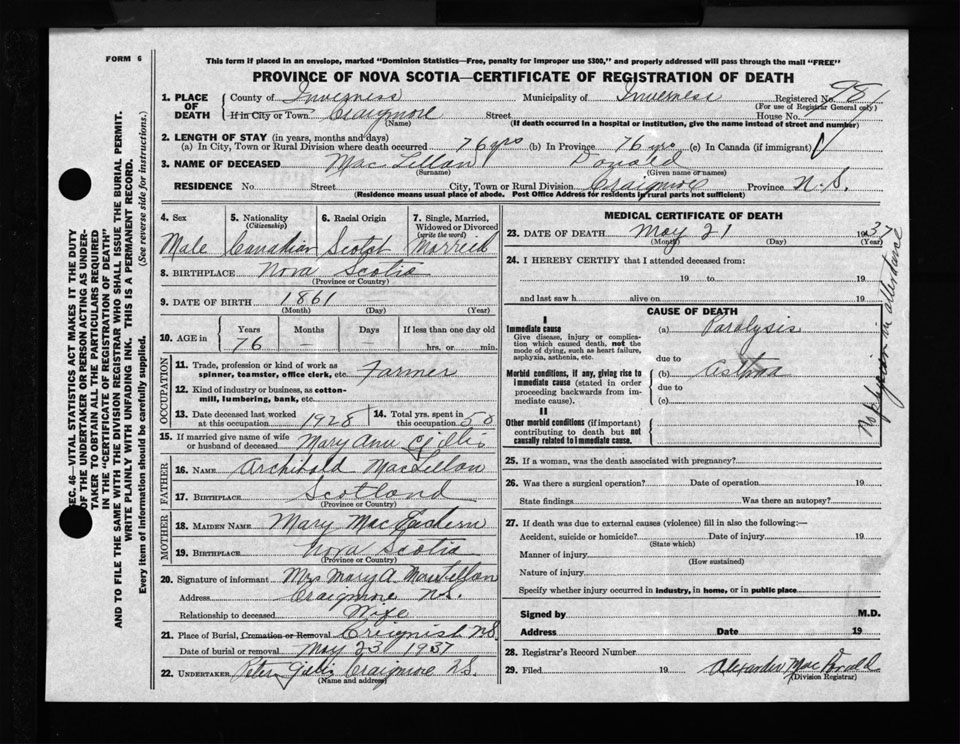 FORM 6
This form if placed in an envelope, marked "Dominion Statistics—Free, penalty for improper use $300," and properly addressed will pass through the mail "FREE"
PROVINCE OF NOVA SCOTIA—CERTIFICATE OF REGISTRATION OF DEATH
1. PLACE OF DEATH County of Inverness Municipality of Inverness Registered No.
(For use of Registrar General only)
If in City or Town Craigmore Street House No.
(Name) (If death occurred in a hospital or institution, give the name instead of street and number)
2. LENGTH OF STAY (in years, months and days)
(a) In City, Town or Rural Division where death occurred 76 yrs (b) In Province 76 yrs (c) In Canada (if immigrant)
3. NAME OF DECEASED MacLellan Donald
(Surname) (Given name or names)
RESIDENCE No. Street City, Town or Rural Division Craigmore Province N.S.
(Residence means usual place of abode. Post Office Address for residents in rural parts not sufficient)
4. Sex 5. Nationality (Citizenship) 6. Racial Origin 7. Single, Married, Widowed or Divorced (write the word)
Male Canadian Scotch Married
8. BIRTHPLACE Nova Scotia
(Province or Country)
9. DATE OF BIRTH 1861
(Month) (Day) (Year)
10. AGE in Years Months Days If less than one day old
76 — — hrs. or min.
OCCUPATION
11. Trade, profession or kind of work as spinner, teamster, office clerk, etc. Farmer
12. Kind of industry or business, as cotton-mill, lumbering, bank, etc.
13. Date deceased last worked at this occupation 1928 14. Total yrs. spent in this occupation 58
15. If married give name of wife or husband of deceased Mary Ann Gillis
FATHER
16. NAME Archibald MacLellan
17. BIRTHPLACE Scotland
(Province or Country)
MOTHER
18. MAIDEN NAME Mary MacEachern
19. BIRTHPLACE Nova Scotia
(Province or Country)
20. Signature of informant Mrs Mary A MacLellan
Address Craigmore N.S.
Relationship to deceased Wife
21. Place of Burial, Cremation or Removal Creignish N.S.
Date of burial or removal May 23 1937
22. UNDERTAKER Peter Gillis Craigmore N.S.
(Name and address)
MEDICAL CERTIFICATE OF DEATH
23. DATE OF DEATH May 21 1937
(Month) (Day) (Year)
24. I HEREBY CERTIFY that I attended deceased from:
19 to 19
and last saw h alive on 19
CAUSE OF DEATH
I
Immediate cause (a) Paralysis
Give disease, injury or complication which caused death, not the mode of dying, such as heart failure, asphyxia, asthenia, etc.
due to
Morbid conditions, if any, giving rise to immediate cause (stated in order proceeding backwards from immediate cause).
(b) astma
due to
(c)
II
Other morbid conditions (if important) contributing to death but not causally related to immediate cause.
No physician in attendance
25. If a woman, was the death associated with pregnancy?
26. Was there a surgical operation? Date of operation 19
State findings Was there an autopsy?
27. If death was due to external causes (violence) fill in also the following:—
Accident, suicide or homicide? Date of injury 19
(State which)
Manner of injury
(How sustained)
Nature of injury
Specify whether injury occurred in industry, in home, or in public place
Signed by M.D.
Address Date 19
28. Registrar's Record Number
29. Filed 19 Alexander MacDonald
(Division Registrar)
SEC. 46—VITAL STATISTICS ACT MAKES IT THE DUTY
OF THE UNDERTAKER OR PERSON ACTING AS UNDER-
TAKER TO OBTAIN ALL THE PARTICULARS REQUIRED
IN THE "CERTIFICATE OF REGISTRATION OF DEATH"
AND TO FILE THE SAME WITH THE DIVISION REGISTRAR WHO SHALL ISSUE THE BURIAL PERMIT.
WRITE PLAINLY WITH UNFADING INK. THIS IS A PERMANENT RECORD.
Every item of information should be carefully supplied. (See reverse side for instructions.)